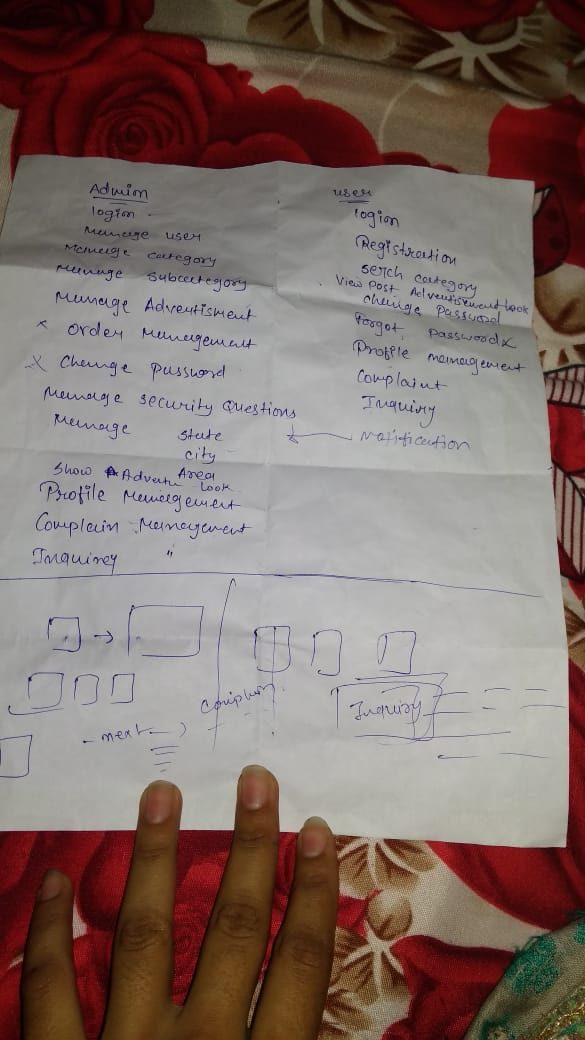 Admim
logion
Memage user
Memege category
Memage Subcategory
Memage Advertisment
x order Memagement
x Chemge password
Memage security Questions
Memage state
city
Area
Show Advertu look
Profile Memegement
Complain Memagement
Inquirey "
user
logion
Registreation
serch category
View Post Advertisement look
chenge Password
Forgot Password x
Profile memagement
Complaint
Inquiry
Notification
next
Inquiry